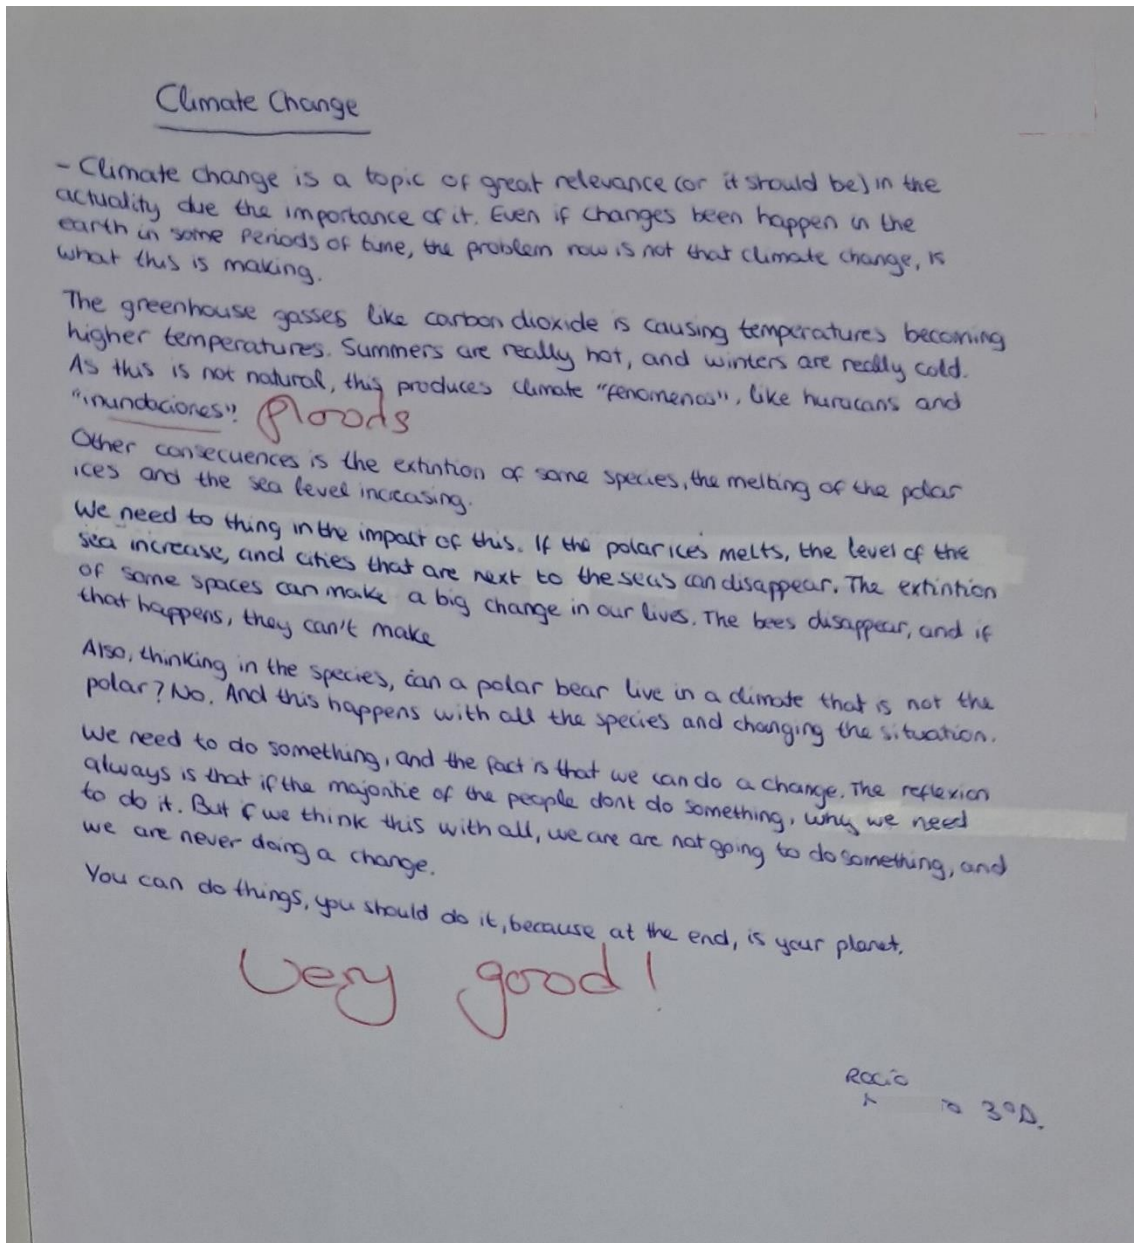 Climate Change
- Climate change is a topic of great relevance (or it should be) in the
actuality due the importance of it. Even if changes been happen in the
earth in some periods of time, the problem now is not that climate change, is
what this is making.
The greenhouse gasses like carbon dioxide is causing temperatures becoming
higher temperatures. Summers are really hot, and winters are really cold.
As this is not natural, this produces climate "fenomenos", like huracans and
"inundaciones". floods
Other consecuences is the extintion of some species, the melting of the polar
ices and the sea level increasing.
We need to thing in the impact of this. If the polar ices melts, the level of the
sea increase, and cities that are next to the seas can disappear. The extintion
of some spaces can make a big change in our lives. The bees disappear, and if
that happens, they can't make
Also, thinking in the species, can a polar bear live in a climate that is not the
polar? No. And this happens with all the species and changing the situation.
We need to do something, and the fact is that we can do a change. The reflexion
always is that if the majoritie of the people dont do something, why we need
to do it. But if we think this with all, we are are not going to do something, and
we are never doing a change.
You can do things, you should do it, because at the end, is your planet.
Very good!
Rocío
3ºD.